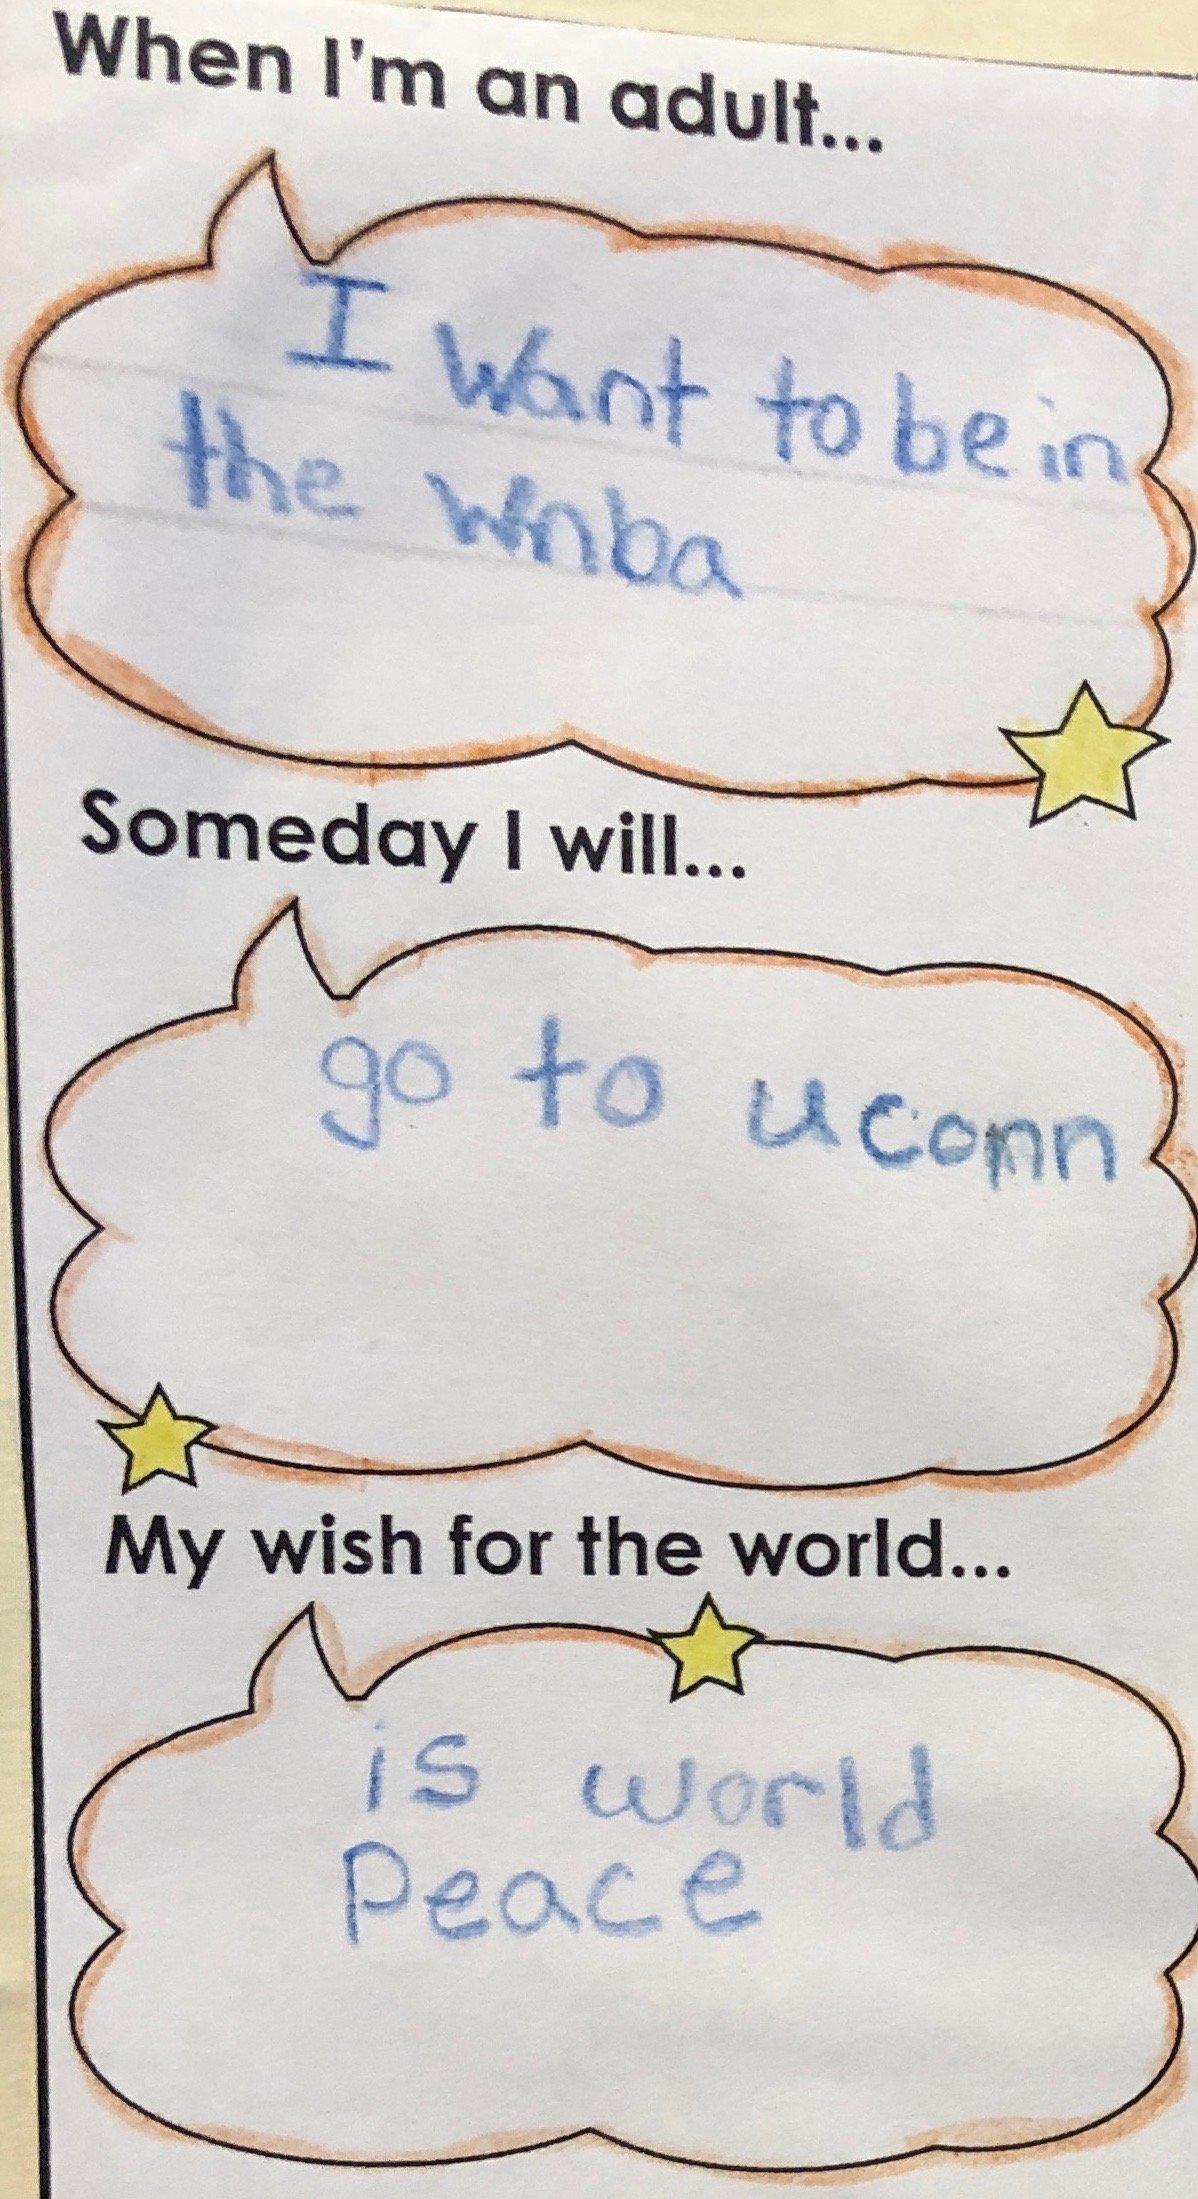 When I'm an adult...
I want to be in
the wnba
Someday I will...
go to uconn
My wish for the world...
is world
Peace